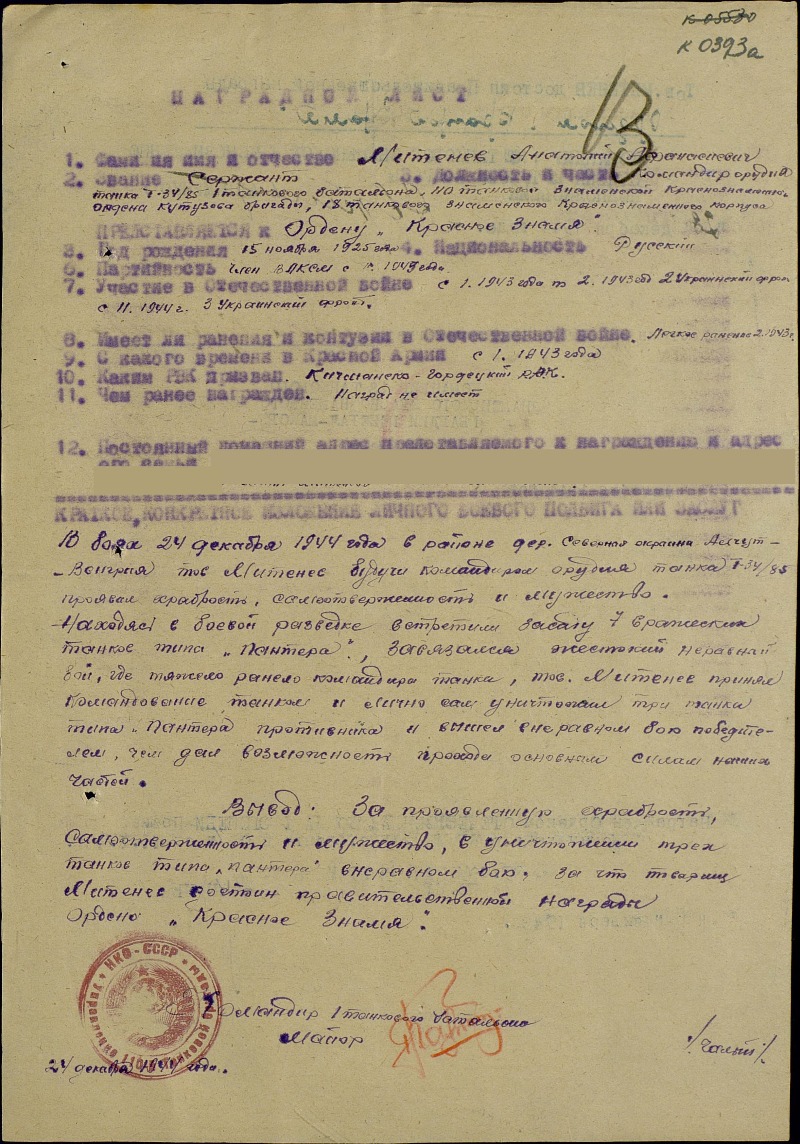 к 0393а
НАГРАДНОЙ ЛИСТ
1. Фамилия имя и отчество Митенев Анатолий Афанасиевич
2. Звание Сержант 3. Должность и часть Командир орудия
танка Т-34/85 1 танкового батальона, 110 танковой Знаменской Краснознаменной
ордена Кутузова бригады, 18 танкового Знаменского Краснознаменного корпуса
ПРЕДСТАВЛЯЕТСЯ К Ордену „Красное Знамя".
3. Год рождения 15 ноября 1925 года 4. Национальность Русский
6. Партийность член ВЛКСМ с 1943 года.
7. Участие в Отечественной войне с 1.1943 года по 2.1943 год 2 Украинский фрон
с 11.1944 г. 3 Украинский фронт.
8. Имеет ли ранения и контузии в Отечественной войне. Легкое ранение 2.1943г.
9. С какого времени в Красной Армии с 1.1943 года
10. Каким РВК призван. Кичменско-Гордецкий РВК.
11. Чем ранее награжден. Наград не имеет
12. Постоянный домашний адрес представляемого к награждению и адрес
его семьи
КРАТКОЕ, КОНКРЕТНОЕ ИЗЛОЖЕНИЕ ЛИЧНОГО БОЕВОГО ПОДВИГА ИЛИ ЗАСЛУГ
В боях 24 декабря 1944 года в районе дер. Северная окраина
-Венгрия тов Митенев будучи командиром орудия танка Т-34/85
проявил храбрость, самоотверженность и мужество.
Находясь в боевой разведке встретили засаду 7 вражеских
танков типа „Пантера", завязался жестокий неравный
бой, где тяжело ранело командира танка, тов. Митенев принял
командование танком и лично сам уничтожил три танка
типа „Пантера противника и вышел внеравном бою победите-
лем, чем дал возможность пройти основным силам наших
частей.
Вывод: За проявленную храбрость,
самоотверженность и мужество, в уничтожении трех
танков типа „Пантера" внеравном бою. За что товарищ
Митенев достоин правительственной награды
Ордена „Красное Знамя".
Командир 1 танкового батальона
Майор
24 декабря 1944 года.
НКО-СССР
Управление 110-й танковой бригады